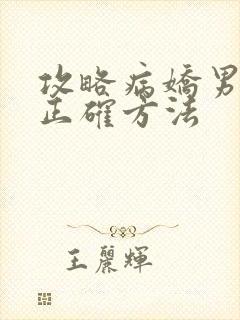 攻略病嬌男
正確方法
王麗輝